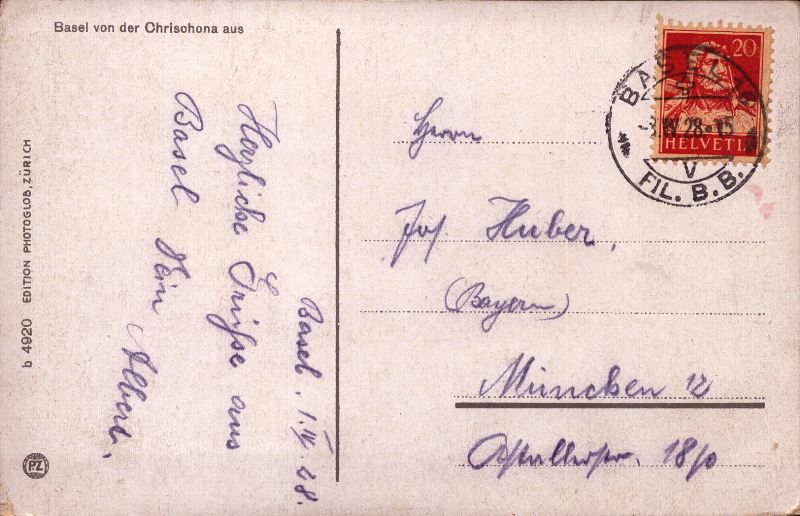 Basel von der Chrischona aus
Basel. 1.IV.28.
Herzliche Grüsse aus
Basel Dein
Albert.
Herrn
Jos Huber,
(Bayern)
München 12
18/0
20
HELVETIA
BASEL
-3.IV.28-15
V
FIL. B.B.
b 4920 EDITION PHOTOGLOB, ZÜRICH
PZ